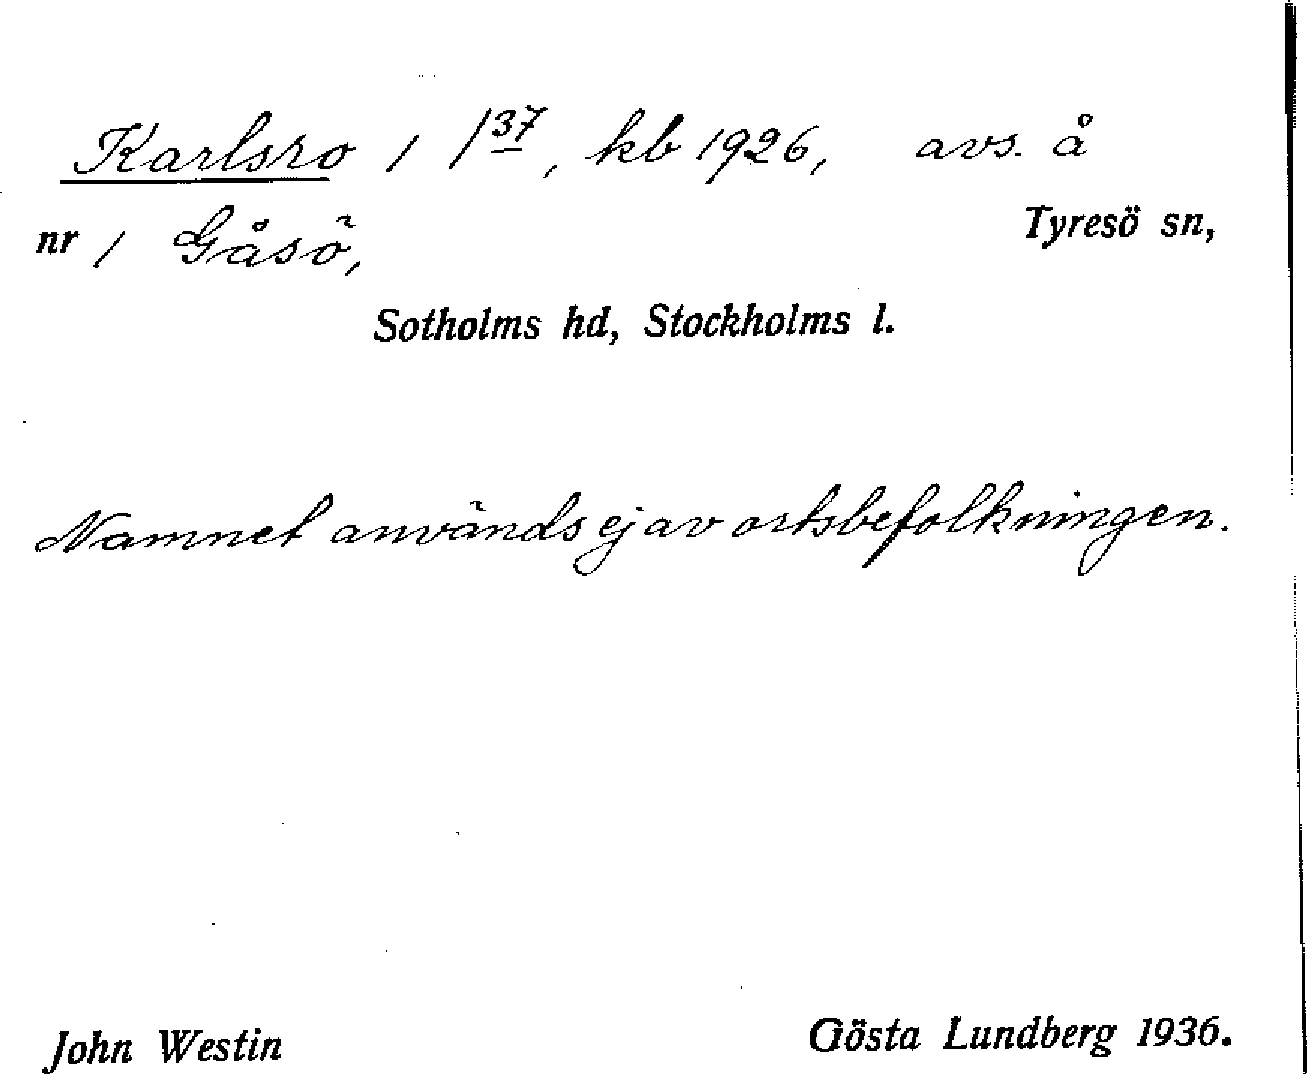 Karlsro 1 1 37, kb 1926, avs. å
nr 1 Gåsö, Tyresö sn,
Sotholms hd, Stockholms l.
Namnet används ej av ortsbefolkningen.
John Westin Gösta Lundberg 1936.